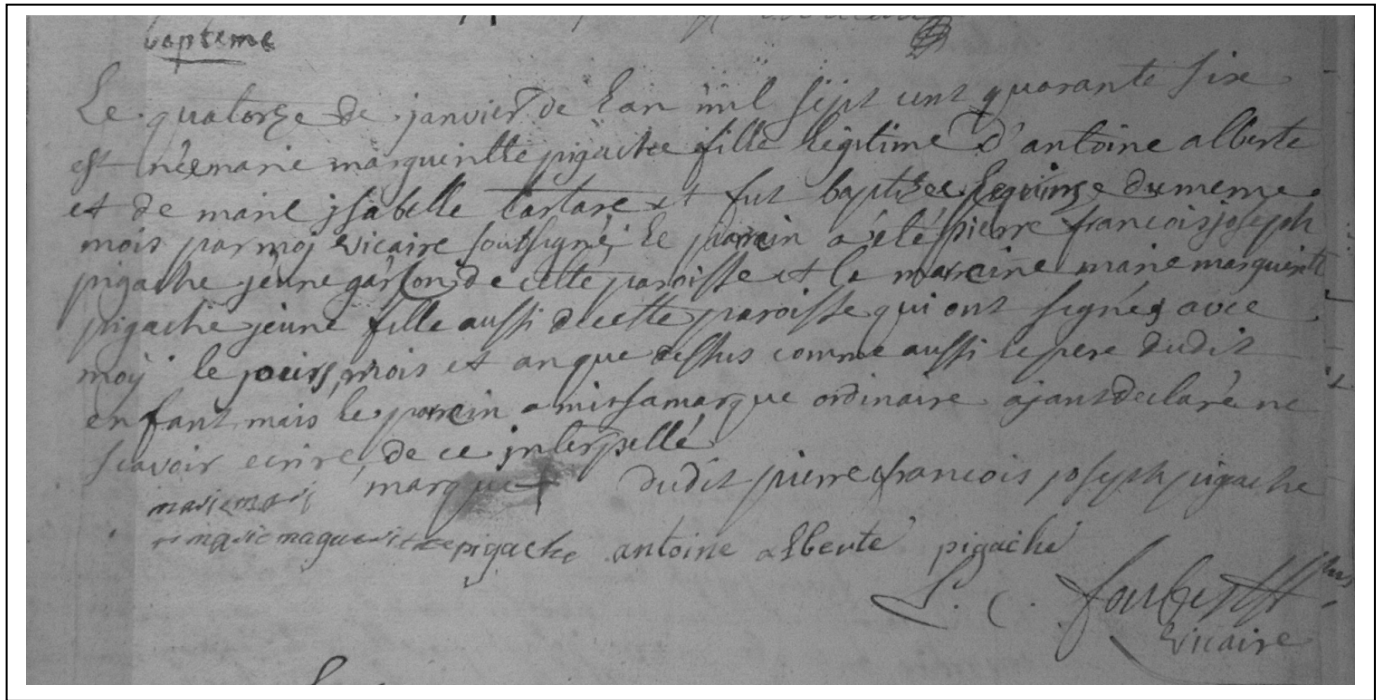 bapteme
Le quatorze de janvier de l'an mil sept cent quarante six
est née marie margueritte pigache fille légitime d'antoine alberte
et de marie jsabelle tartare et fut baptisée le quinze du meme
mois par moj vicaire soussigné le parein a été pierre francois joseph
pigache jeune garçon de cette paroisse et la mareine marie marguerite
pigache jeune fille aussi de cette paroisse qui ont signés avec
moÿ le jour, mois et an que dessus comme aussi le pere dudit
enfant mais le parein a mit sa marque ordinaire ajant declaré ne
scavoir ecrire, de ce interpellé
marque + dudit pierre francois joseph pigache
marie
marie pigache antoine alberte pigache
vicaire